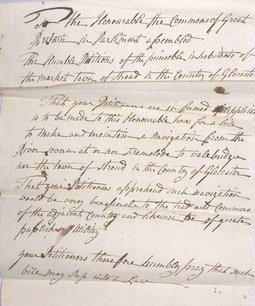 To the Honourable the Commons of Great
Britain in Parliment assembled
The Humble Petitions of the principle inhabitents of
the market town of Stroud in the County of Glocester
That your Petitioners are informed application
is to be made to this Honourable hous for a bill
to make and maintain a Navigation from the
River Severn at or ner Fremelode to valebridge
ner the town of Stroud in the County of Glocester
That your Petitioners apprehend such navigation
would be very beneficial to the trade and commers
of the adjacent Country and likewise be of greate
publick utility
your Petitioners therefore humbly pray that such
bill may pass into a Law